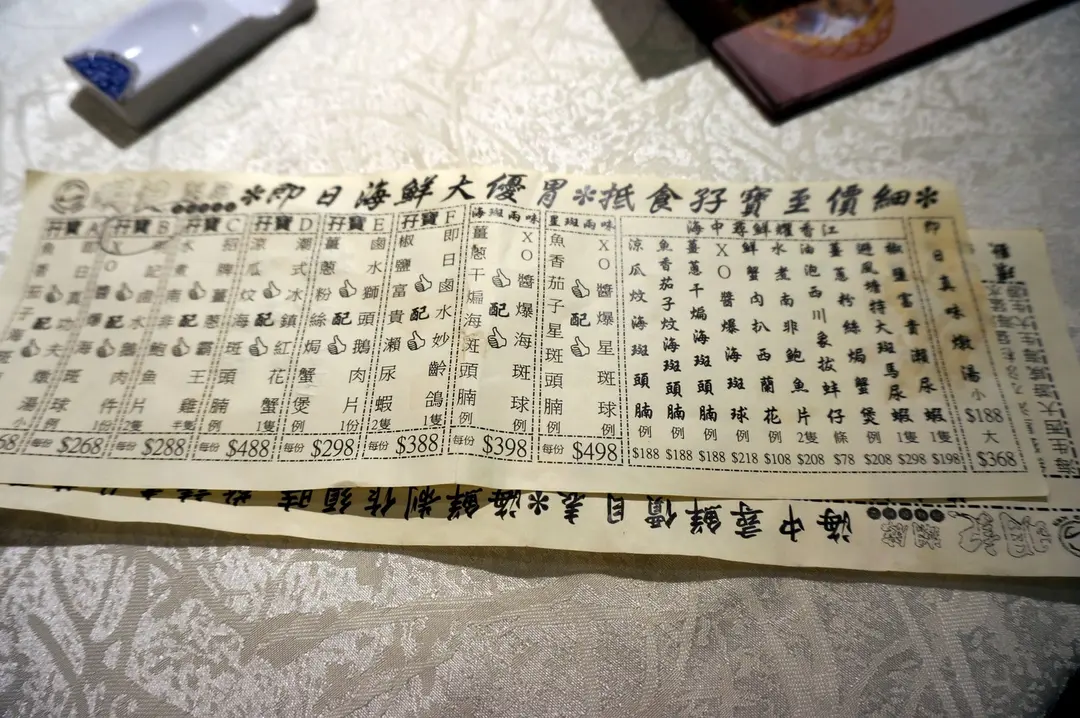 ✻即日海鮮大優胃✻抵食孖寶至價細✻
即日真味燉湯
小 $188
大 $368
海中尋鮮耀香江
椒鹽富貴瀨尿蝦 1隻 $198
避風塘特大斑馬尿蝦 1隻 $298
薑蔥粉絲焗蟹煲 例 $208
油泡西川象拔蚌仔 條 $78
水煮南非鮑魚片 2隻 $208
鮮蟹肉扒西蘭花 例 $108
XO醬爆海斑球 例 $218
薑蔥干煸海斑頭腩 例 $188
魚香茄子炆海斑頭腩 例 $188
涼瓜炆海斑頭腩 例 $188
星斑兩味
XO醬爆星斑球 例
配
魚香茄子星斑頭腩 例
每份 $498
海斑兩味
XO醬爆海斑球 例
配
薑蔥干煸海斑頭腩 例
每份 $398
孖寶F
即日鹵水妙齡鴿 1隻
配
椒鹽富貴瀨尿蝦 2隻
每份 $388
孖寶E
鹵水獅頭鵝肉片 1份
配
薑蔥粉絲焗蟹煲 例
每份 $298
孖寶D
潮式冰鎮紅花蟹 1隻
配
涼瓜炆海斑頭腩 例
每份 $488
孖寶C
招牌薑蔥霸王雞 半隻
配
水煮南非鮑魚片 2隻
每份 $288
孖寶B
鹵水鵝肉件 1份
配
XO醬爆海斑球 例
每份 $268
孖寶A
真功夫燉湯 小
配
海中尋鮮價目表✻海鮮制作